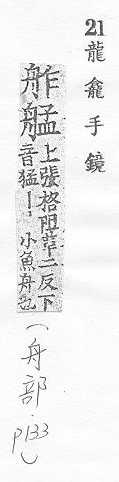 21 龍龕手鏡
舴艋上張格阻革二反下
音猛丨丨小魚舟也
(舟部·p133)